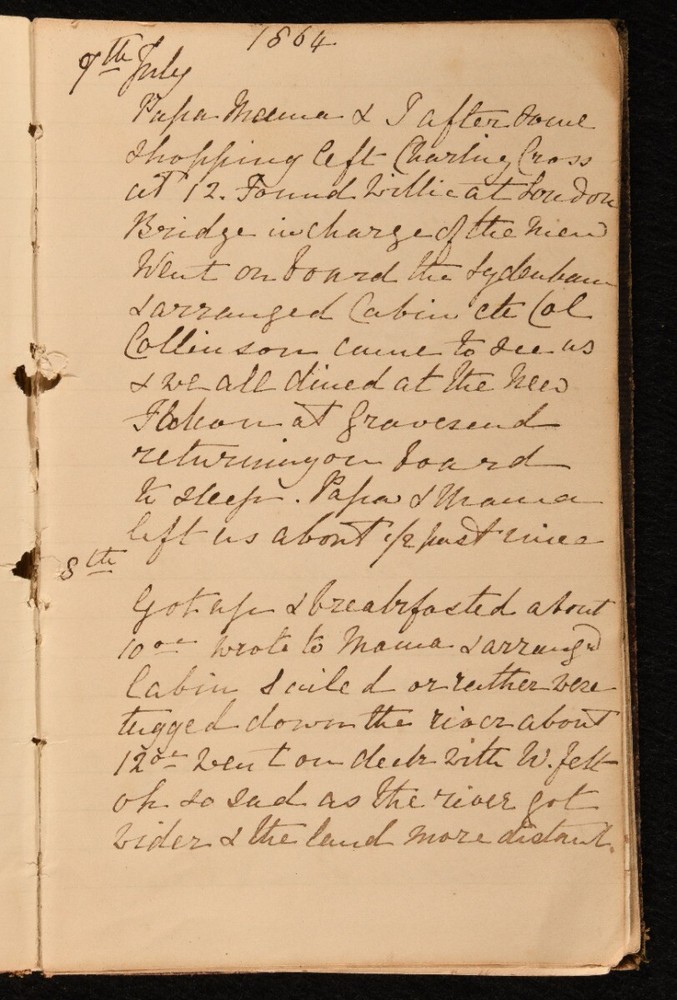 1864
7th July
Papa Mama & I after some
shopping left Charing Cross
at 12. Found Willie at London
Bridge in charge of the men
Went on board the Sydenham
& arranged Cabin etc Col
Collinson came to see us
& we all dined at the New
Falcon at Gravesend
returning on board
to sleep. Papa & Mama
left us about 1/2 past nine
8th
Got up & breakfasted about
10 oc wrote to Mama & arranged
Cabin Sailed or rather were
tugged down the river about
12 oc went on deck with W. felt
oh so sad as the river got
wider & the land more distant.